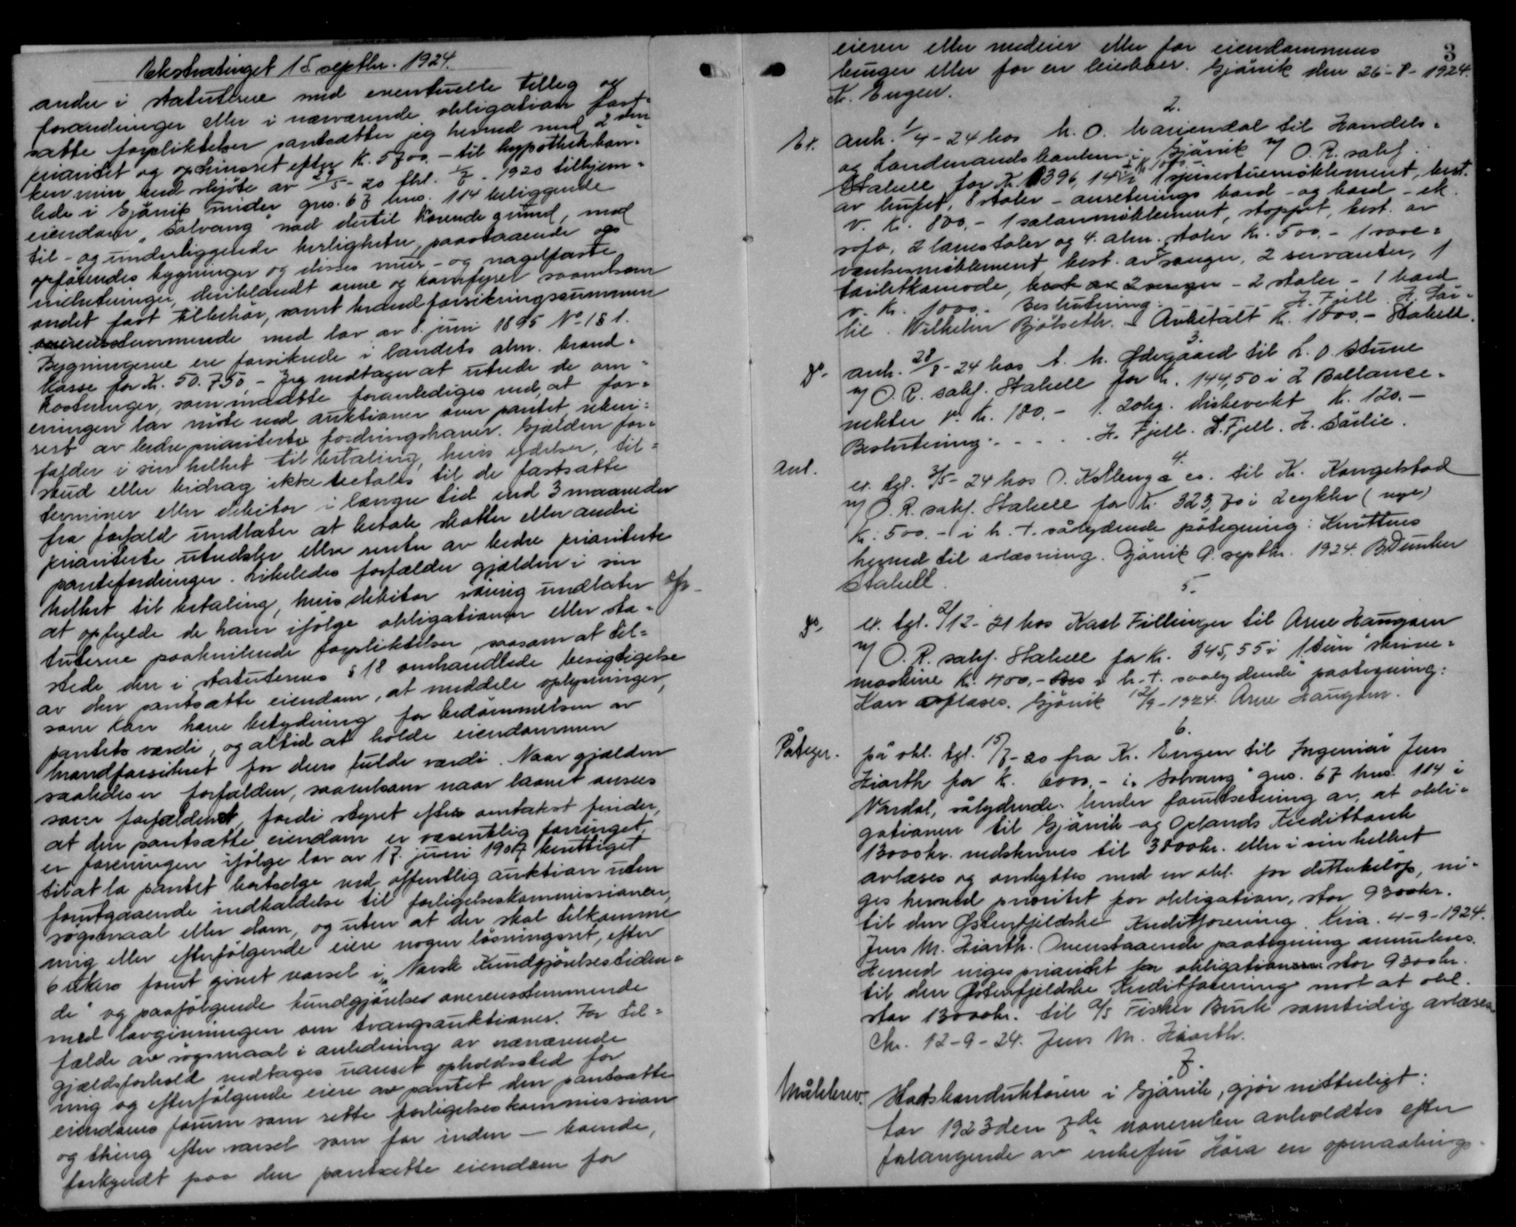 Ekstratinget 15 septbr. 1924.
andre i statuterne med eventuelle tillæg og
forandringer eller i nærværende obligation fast-
satte forpliktelser pantsætter jeg herved med 2den
prioritet og opskrivret efter K. 5700.- til hypothekban-
ken min ved skjøte av 29/5-20 thl. 1/7-1920 tilhjem-
lede i Gjøvik under gno. 67 bno. 114 beliggende
eiendom "Solvang" med dertil hørende grund, med
til- og underliggende herligheter, paastaaende og
opførendes bygninger og disses mur- og nagelfaste
indretninger, deriblandt ovne og komfyrer saavelsom
andet fast tilbehør, samt brandforsikringssummen
overensstemmende med lov av 8. juni 1895 No 181.
Bygningerne er forsikrede i landets alm. brand-
kasse for K. 50.750,- Jeg vedtager at utrede de om-
kostninger, som maatte foranlediges ved, at for-
eningen lar møte ved auktioner over pantet, rekvi-
rert av bedre prioriterte fordringshaver. Gjælden for-
falder i sin helhet til betaling, hvis ydelser, til-
skud eller bidrag ikke betales til de fastsatte
terminer eller debitor i længre tid end 3 maaneder
fra forfald undlater at betale skatter eller andre
prioriterte utredsler eller renter av bedre prioriterte
pantefordringer. Likeledes forfalder gjælden i sin
helhet til betaling, hvis debitor øvrig undlater
at opfylde de ham ifølge obligationen eller sta-
tuterne paahvilende forpliktelser, saasom at til-
stede den i statuternes § 18 omhandlede besigtigelse
av den pantsatte eiendom, at meddele oplysninger,
som kan have betydning for bedømmelsen av
pantets værdi, og altid at holde eiendommen
brandforsikret for dens fulde værdi. Naar gjælden
saaledes er forfalden, saavelsom naar laanet ansees
som forfaldent, fordi styret efter omtakst finder,
at den pantsatte eiendom er væsentlig forringet,
er foreningen ifølge lov av 17. juni 1907 berettiget
til at la pantet bortsælge ved offentlig auktion uten
forutgaaende indkaldelse til forligelseskommissionen,
søgsmaal eller dom, og uten at der skal tilkomme
mig eller efterfølgende eiere nogen løsningsret, efter
6 ukers forut givet varsel i "Norsk Kundgjørelsestiden-
de" og paafølgende kundgjørelser overensstemmende
med lovgivningen om tvangsauktioner. For til-
fælde av søgsmaal i anledning av nærværende
gjældsforhold vedtages uanset opholdssted for
mig og efterfølgende eiere av pantet den pantsatte
eiendoms forum som rette forligelseskommission
og thing efter varsel som for inden- boende,
forkyndt paa den pantsatte eiendom for
3
eieren eller medeier eller for eiendommens
bruger eller for en leieboer. Gjøvik den 26-8-1924.
K. Engen.
2.
Ex. anh. 1/4-24 hos M. O. Mariendal til Handels-
og Landmandsbanken i Gjøvik v/ O. R. sakf.
Stabell for K. 1396,14 i 1 spisestuemøblement, best.
av buffet, 8 stoler - anretnings bord - og bord - ek
v. K. 800,- 1 salonmøblement, stoppet, best. av
sofa, 2 lænestoler og 4. alm. stoler K. 500.- 1 sove-
værelsesmøblement best. av senger, 2 servanter, 1
toiletkomode, 2 stoler - 1 bord
v. K. 1000.- Beslutning. H. Fjell. H. Sør-
lie. Wilhelm Bjølseth. Avbetalt K. 1000.- Stabell.
3.
do. anh. 28/8-24 hos M. Ødegaard til L. O Stune
v/ O. R. sakf. Stabell for K. 144,50 i 2 Ballance-
vekter v. K. 180.- 1. 20kg. diskevekt K. 120.-
Beslutning. . . . . . H. Fjell. L. Fjell. H. Sørlie.
4.
Avl. ex. tgl. 3/5-24 hos O. Kollenga es. til K. Kongelstad
v/ O. R. sakf. Stabell for K. 323,70 i 2 cykler (nye)
K. 500.- i h. t. sålydende påtegning: Kvitteres
herved til avlæsning. Gjøvik 9. septbr. 1924. B Dunker
Stabell.
5.
do. ex. tgl. 2/12-21 hos Karl Fillinger til Arne Haugom
v/ O. R. sakf. Stabell for K. 345,55 i 1 skrive-
maskine K. 400.- i h. t. saalydende paategning:
Kan avlæses. Gjøvik 12/9-1924. Arne Haugom.
6.
Påtegn. på obl. tgl. 15/7-20 fra K. Engen til Ingeniør Jens
Hiorth for K. 6000.- i "Solvang" gno. 67 bno. 114 i
Vardal, sålydende. Under forutsetning av, at obli-
gationen til Gjøvik og Oplands Kreditbank
13000kr. nedskrives til 3800kr. eller i sin helhet
avlæses og ombyttes med en obl. for dette beløp, vi-
ges herved prioritet for obligation, stor 9300kr.
til den Østenfjeldske Kreditforening. Kria. 4-9-1924.
Jens M. Hiorth. Ovenstaaende paategning annuleres.
Herved viges prioritet for obligation stor 9300kr.
til den Østenfjeldske Kreditforening mot at obl.
stor 13000kr. til A/S Fisker Bruk samtidig avlæses.
Chr. 12-9-24. Jens M. Hiorth.
7.
Målebrev. Stadskonduktøren i Gjøvik, gjør vitterligt:
Aar 1923 den 7de november avholdtes efter
forlangende av enkefru Hóra en opmaalings-